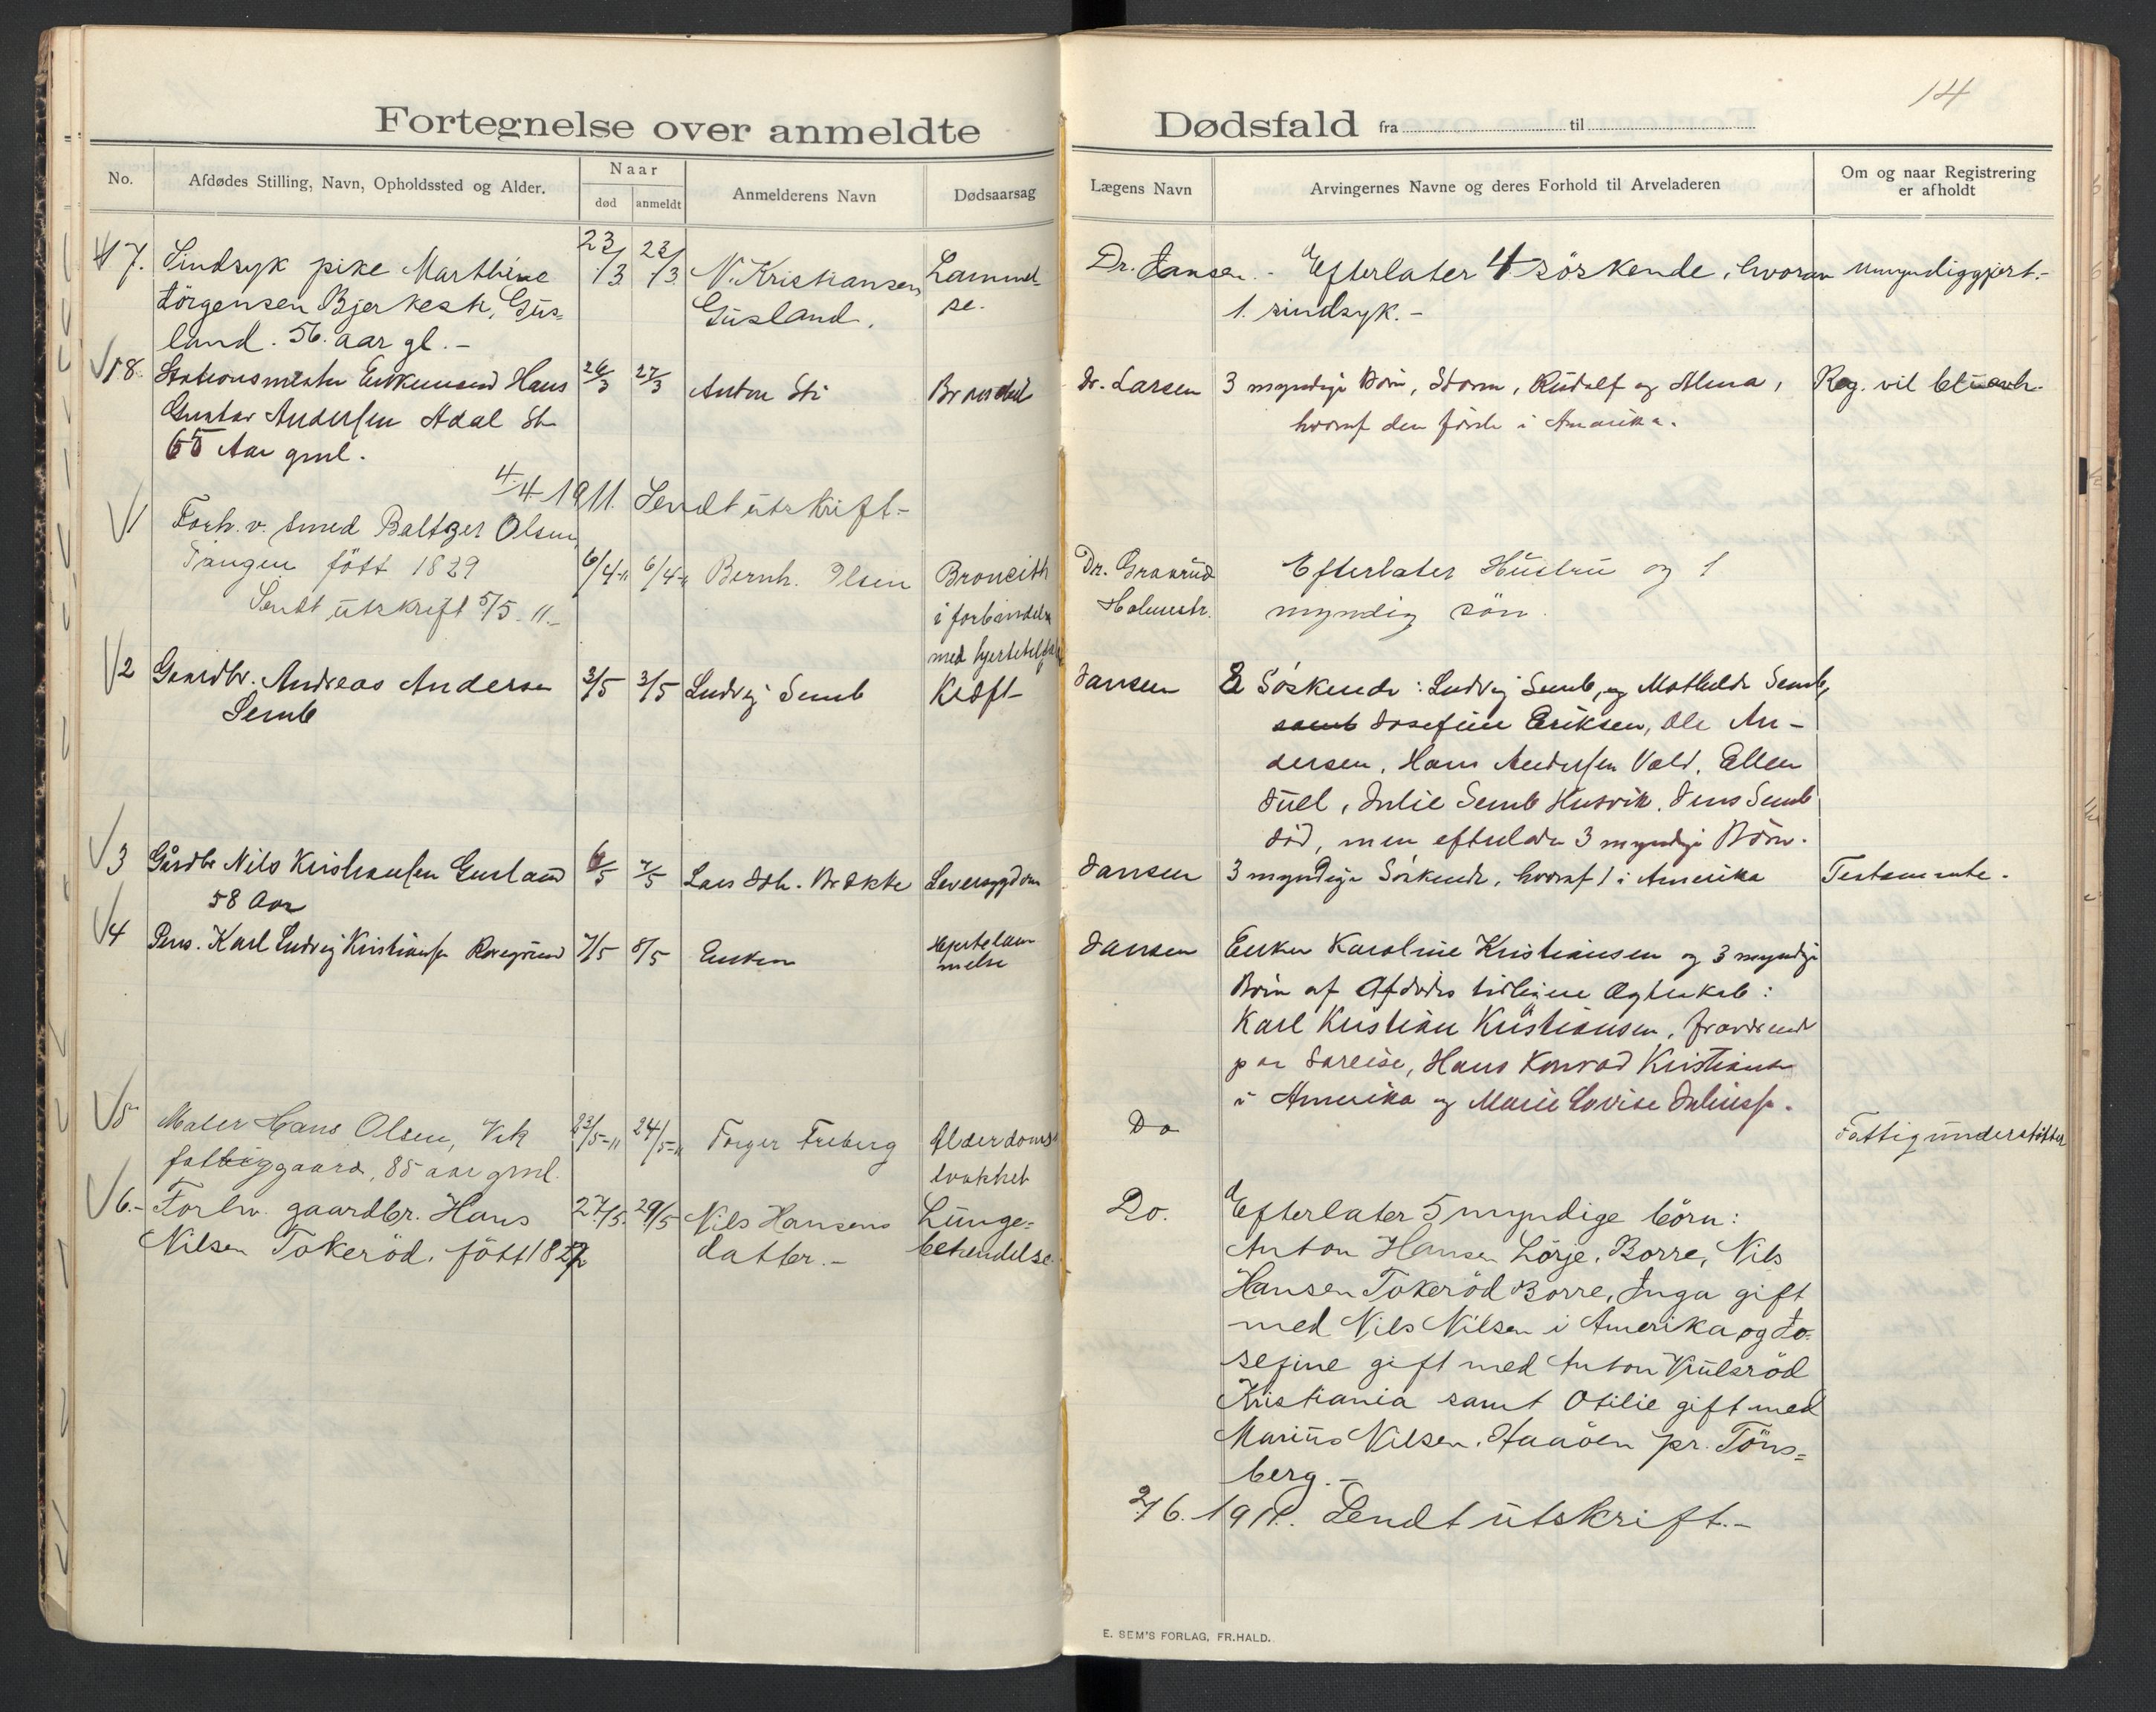 14
Fortegnelse over anmeldte Dødsfald fra til
No.
Afdødes Stilling, Navn, Opholdssted og Alder.
Naar
død anmeldt
Anmelderens Navn
Dødsaarsag
Lægens Navn
Arvingernes Navne og deres Forhold til Arveladeren
Om og naar Registrering
er afholdt
17. Sindsyk pike Marthine
Jörgensen Bjerkestr, Gus=
land. 56. aar gl. -
23/3 23/3
N. Kristiansen
Gusland.
Lammel-
se.
Dr. Jansen. -
Efterlater 4 söskende, hvorav
1. sindsyk. -
umyndiggjort. -
18. Stationsmester Enkemand Hans
Gustav Andersen Adal St.
65 Aar gml.
26/3 27/3
Anton Sti
Dr. Larsen
3 myndige Börn, Storm, Rudolf og Alma,
hvoraf den förste i Amerika.
Reg. vil bli
4/4 1911. Sendt utskrift -
1 Forh. v. smed Baltzer Olsen
Tangen fött 1829
Sendt utskrift 5/5 - 11. -
6/4-11 6/4-11
Bernh. Olsen
Broncitt
i forbindelse
med
Dr. Graarud
Holmestr.
Efterlater Hustru og 1
myndig sön.
2 Gaardbr. Andreas Andersen
Semb
3/5 3/5
Ludvig Semb
Kræft
Jansen
8 Söskende: Ludvig Semb, og Mathilde Semb,
samt Josefine Eriksen, Ole An-
dersen, Hans Andersen Vold, Ellen
Juel, Julie Semb Husvik, Jens Semb
död, men efterlader 3 myndige Börn.
3 Gårdbr Nils Kristiansen Gusland
58 Aar
6/5 7/5
Lars Joh. Brekke
Leversygdom
Jansen
3 myndige Söskende, hvoraf 1 i Amerika
Testamente.
4 Pens. Karl Ludvig Kristiansen
7/5 8/5
Enken
Hjertelam
melse
Jansen
Enken Karoline Kristiansen og 3 myndige
Börn af Afdödes tidligere Ægteskab:
Karl Kristian Kristiansen, fraværende
paa Söreise, Hans Konrad Kristiansen
i Amerika og Marie Lovise Juliussen.
5 Maler Hans Olsen, Vik
fattiggaard, 85 aar gml.
23/5-11 24/5-11
Torger Freberg
Alderdoms
svakhet
Do
Fattigunderstöttet
6. - Forhv. gaardbr. Hans
Nilsen Tokeröd. fött 1827
27/5. 29/5
Nils Hansens
datter. -
Lunge=
betendelse.
Do.
Efterlater 5 myndige börn:
Anton Hansen Lörje, Borre, Nils
Hansen Tokeröd Borre, Inga gift
med Nils Nilsen i Amerika og Jo-
sefine gift med Anton Vrulsröd
Kristiania samt Otilie gift med
Marius Nilsen, Haaöen pr. Töns=
berg. -
2/6. 1911. Sendt utskrift. -
E. SEM'S FORLAG, FR.HALD.